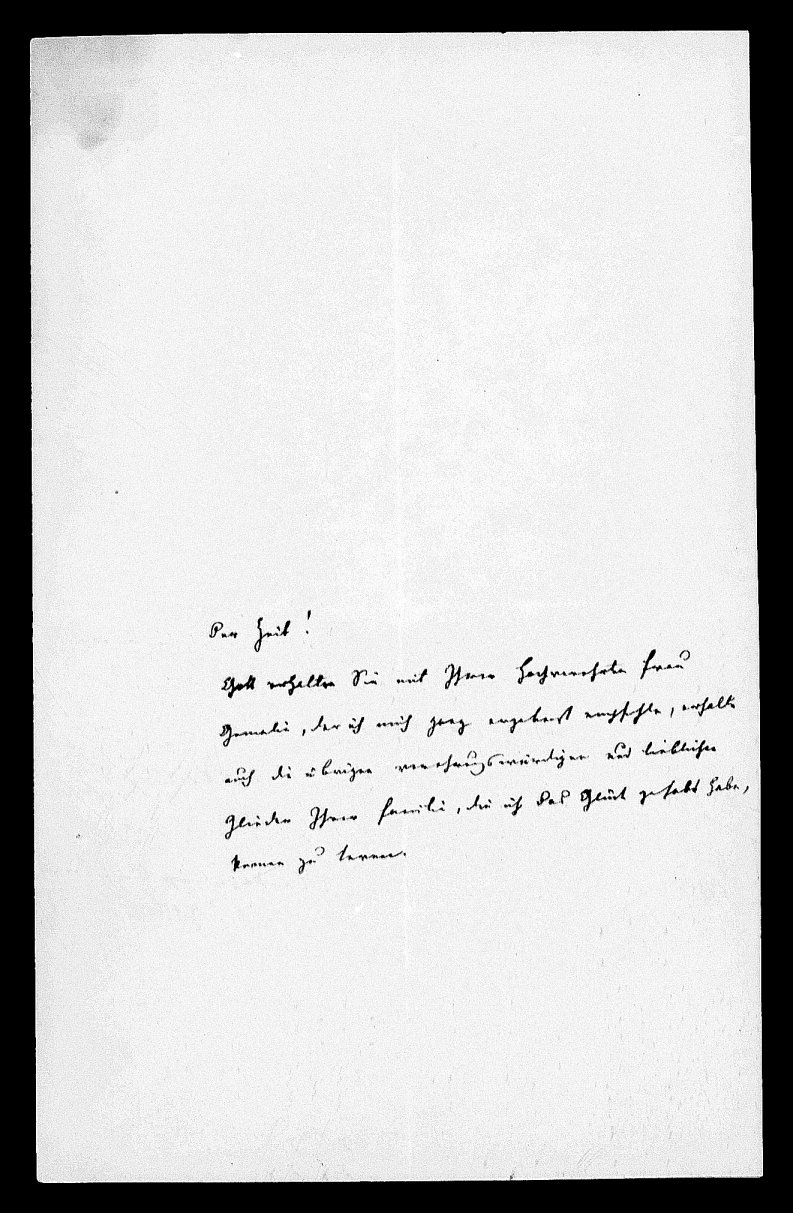 der Zeit!
Gott erhalte Sie mit Ihrer hochverehrten Frau
Gemalin, der ich mich ganz ergebenst empfehle, erhalte
auch die übrigen verehrungswürdigen und lieblichen
Glieder Ihrer Familie, die ich das Glück gehabt habe,
kennen zu lernen.